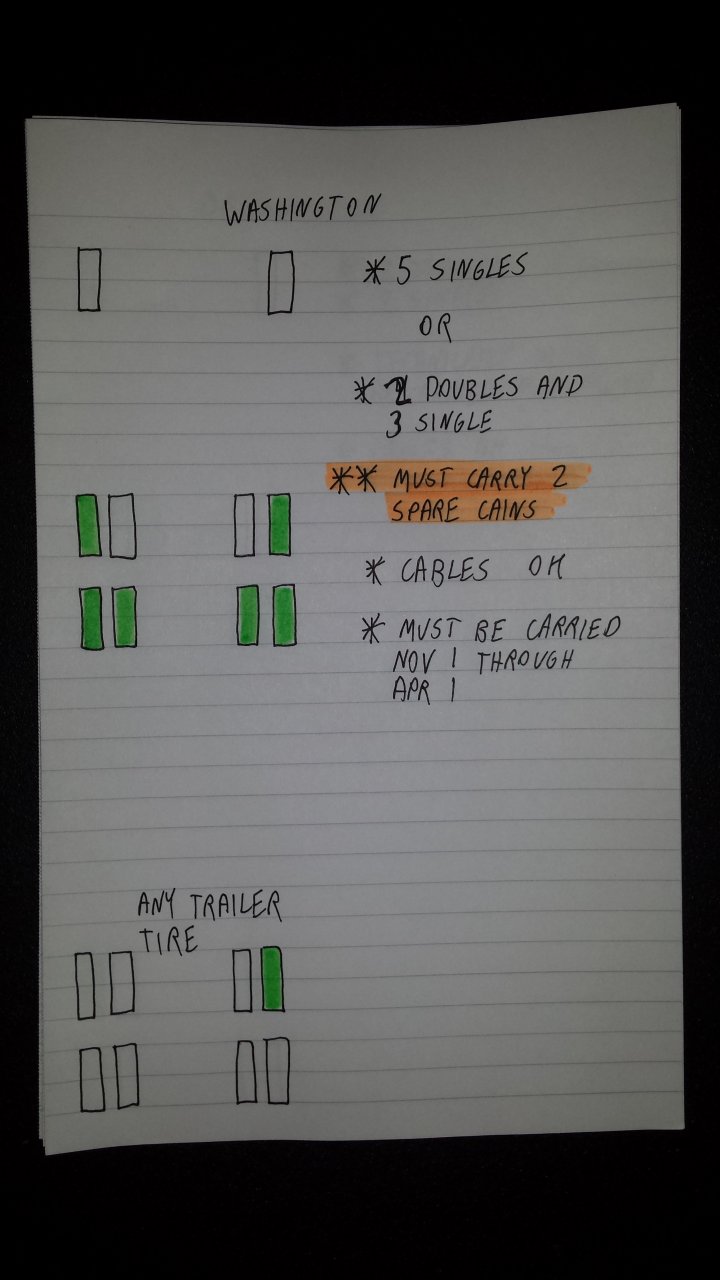 WASHINGTON
* 5 SINGLES
OR
* 2 DOUBLES AND
3 SINGLE
** MUST CARRY 2
SPARE CAINS
* CABLES OK
* MUST BE CARRIED
NOV 1 THROUGH
APR 1
ANY TRAILER
TIRE